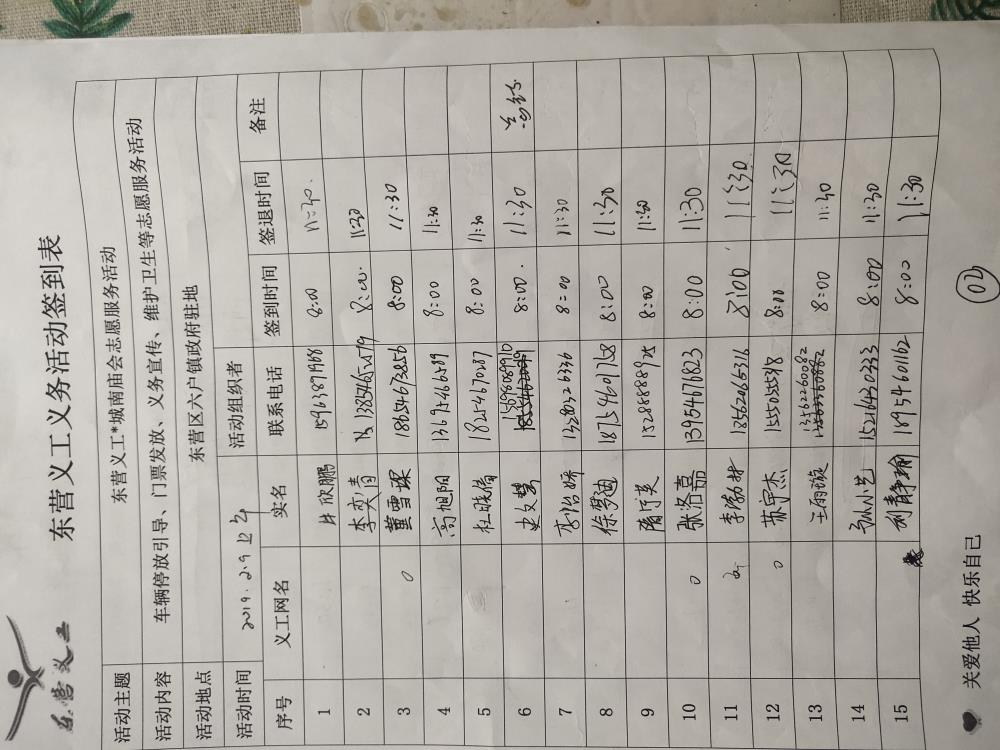 东营义工
东营义工义务活动签到表
活动主题 东营义工*城南庙会志愿服务活动
活动内容 车辆停放引导、门票发放、义务宣传、维护卫生等志愿服务活动
活动地点 东营区六户镇政府驻地
活动时间 2019.2.9上午 活动组织者
序号 义工网名 实名 联系电话 签到时间 签退时间 备注
1 欣鹏 15963871968 8:00 11:30
2 李奕清 8:00 11:30
3 董雪 18654673856 8:00 11:30
4 高旭阳 13675466599 8:00 11:30
5 杜晓倩 18254670287 8:00 11:30
6 8:00 11:30
7 李怡妍 8:00 11:30
8 徐梦迪 18754601758 8:00 11:30
9 隋守英 15288888925 8:00 11:30
10 张洛嘉 13954676823 8:00 11:30
11 13562665316 8:00 11:30
12 苏宇杰 8:00 11:30
13 王雨璇 13562260082 8:00 11:30
14 孙小艺 15216430333 8:00 11:30
15 刘静瑜 18954601162 8:00 11:30
关爱他人 快乐自己
02